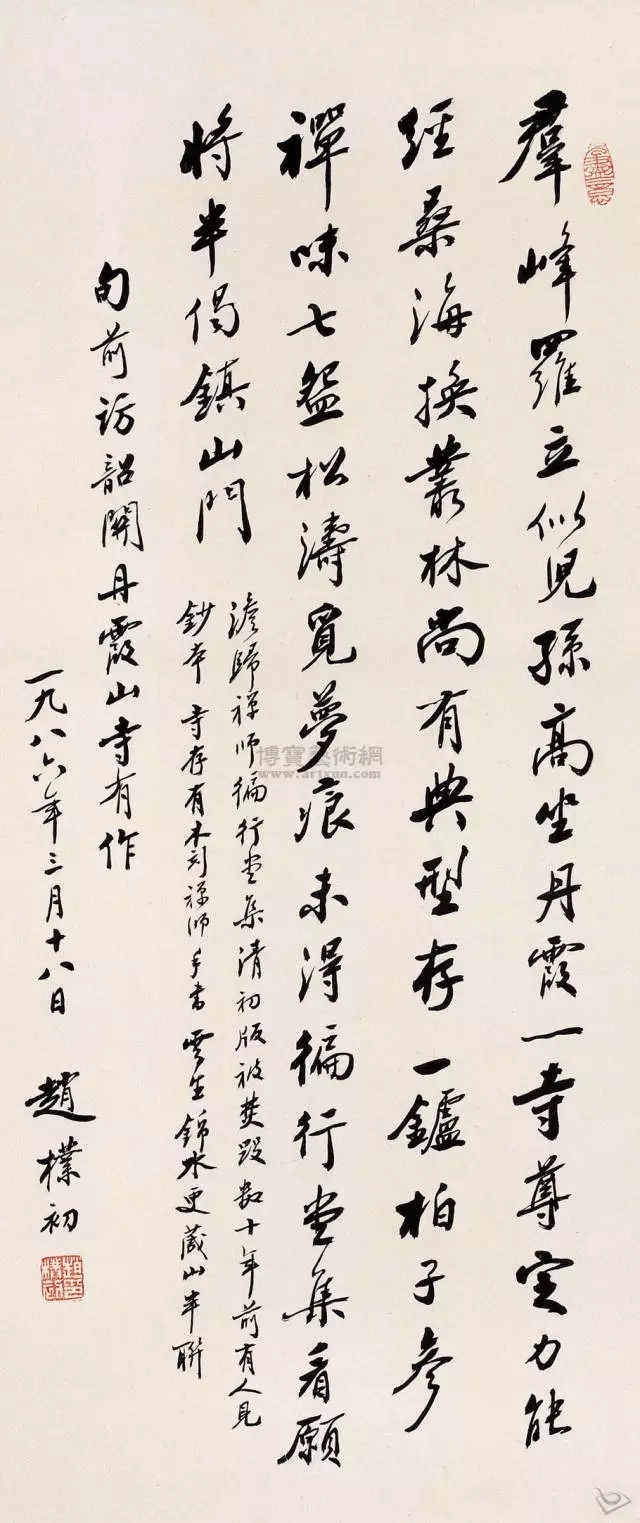 羣峰羅立似兒孫高坐丹霞一寺尊定力能
經桑海換叢林尚有典型存一鑪柏子參
禪味七盌松濤覓夢痕未得徧行堂集看願
將半偈鎮山門
澹歸禅师徧行堂集清初版被焚毁数十年前有人見
鈔本 寺存有木刻禅师手書雲生錦水更藏山半联
旬前访韶關丹霞山寺有作
一九八六年三月十八日
趙樸初
博寶藝術網
www.artxun.com